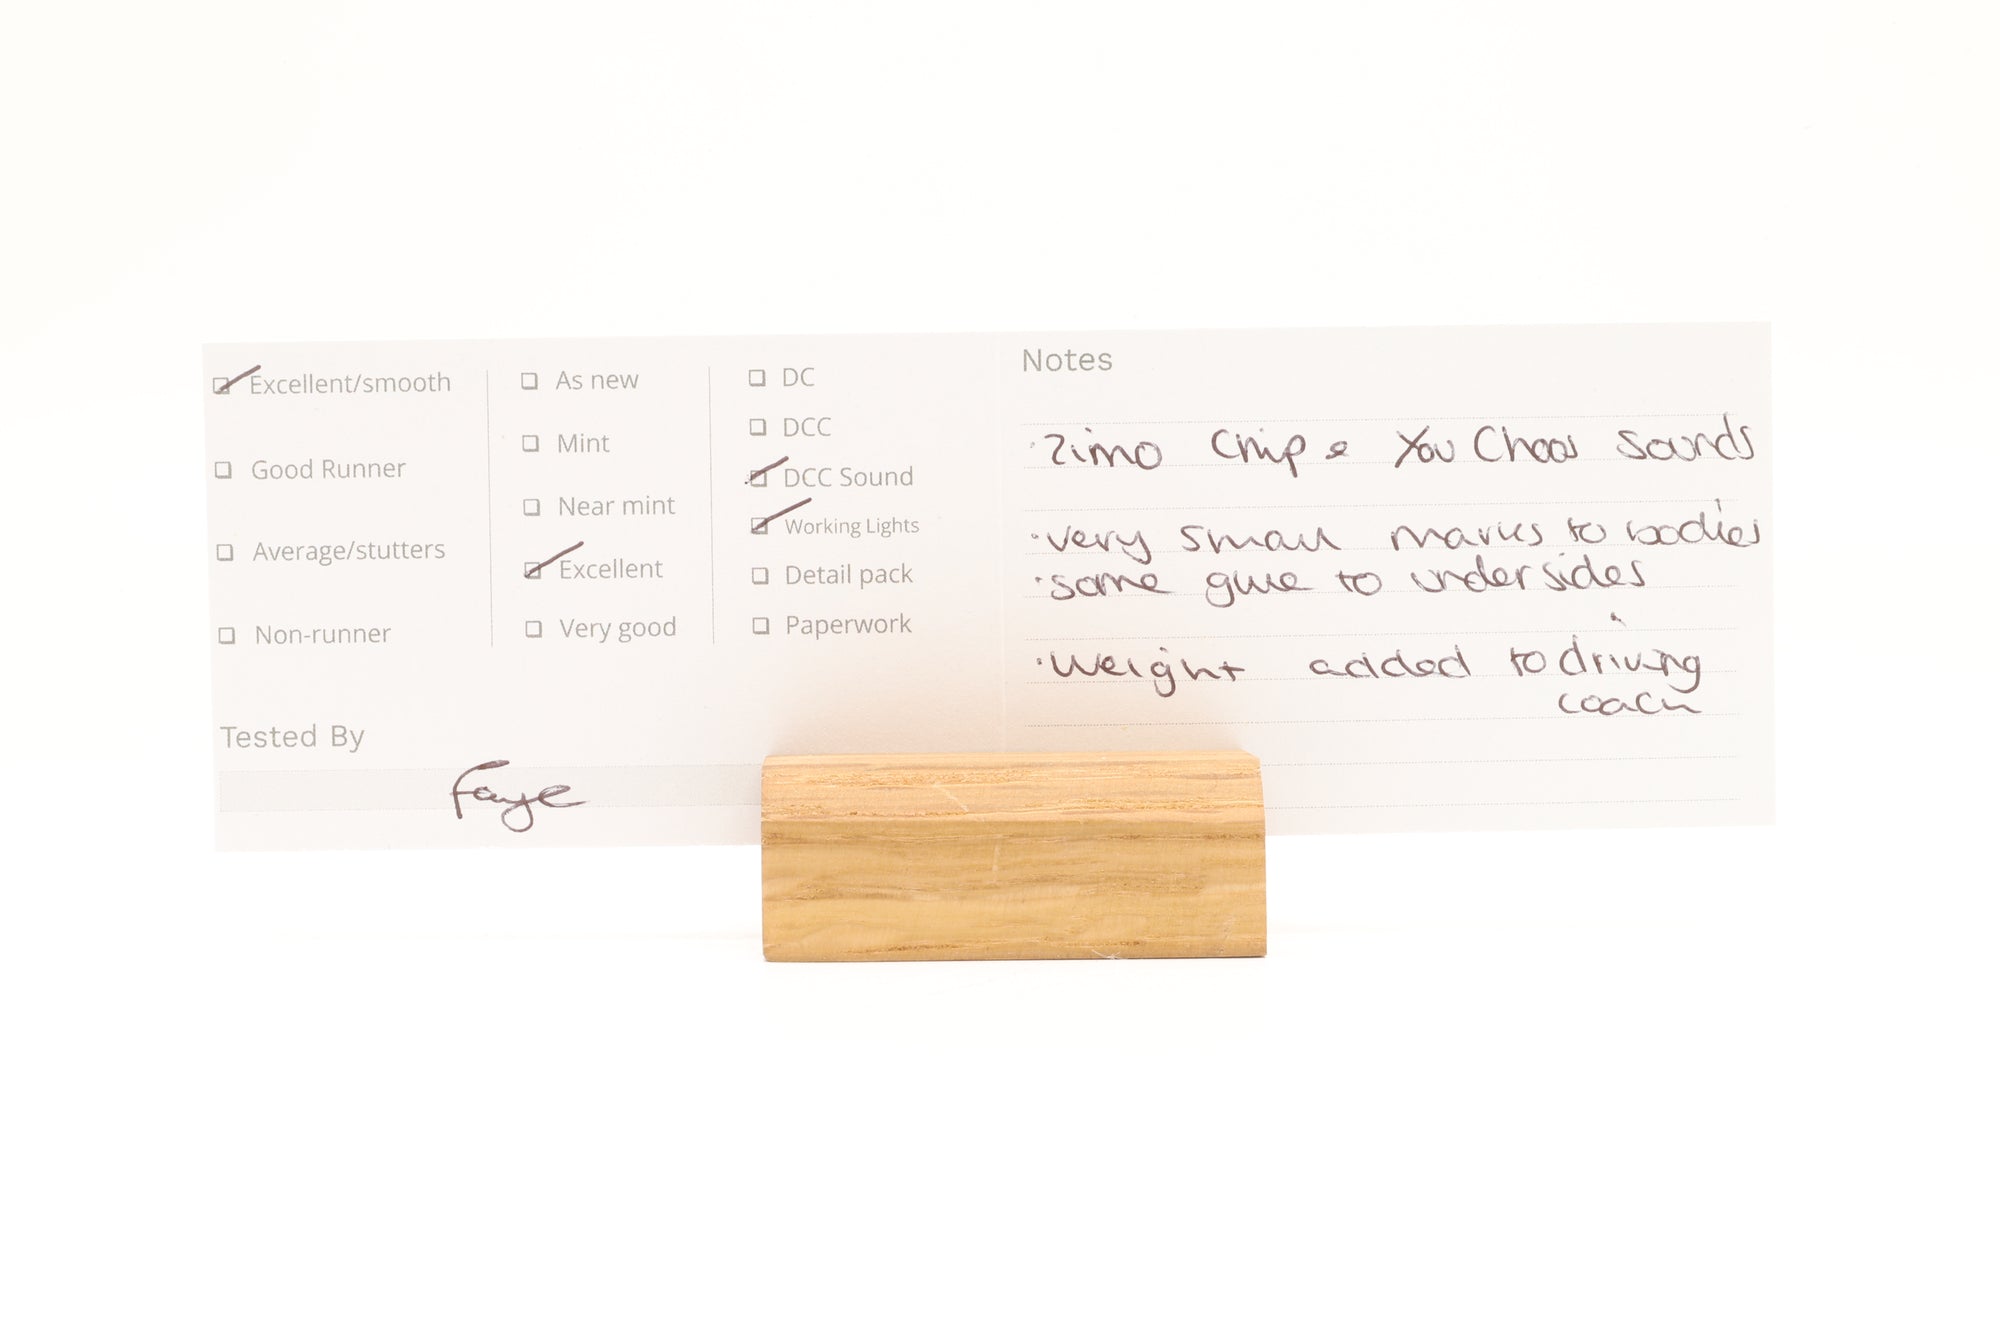 Excellent/smooth
Good Runner
Average/stutters
Non-runner
As new
Mint
Near mint
Excellent
Very good
DC
DCC
DCC Sound
Working Lights
Detail pack
Paperwork
Tested By
Faye
Notes
·Zimo Chip & You Choos Sounds
·very small marks to bodies
·some glue to undersides
·Weight added to driving
coach